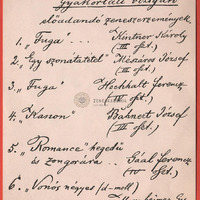 gyakorlati vizsgán
előadandó zeneszerzemények
1. „Fuga”... Kintner Károly
(III oszt.)
2. „Egy szonátatétel” Mészáros József
(III. oszt.)
3. „Fuga” Hochhalt Ferencz
4. „Kanon” Bahnert József
(III. oszt.)
5. „Romance” hegedű
és zongorára.. Gaál Ferencz
(IV oszt.)
6. „Vonós négyes (d-moll)